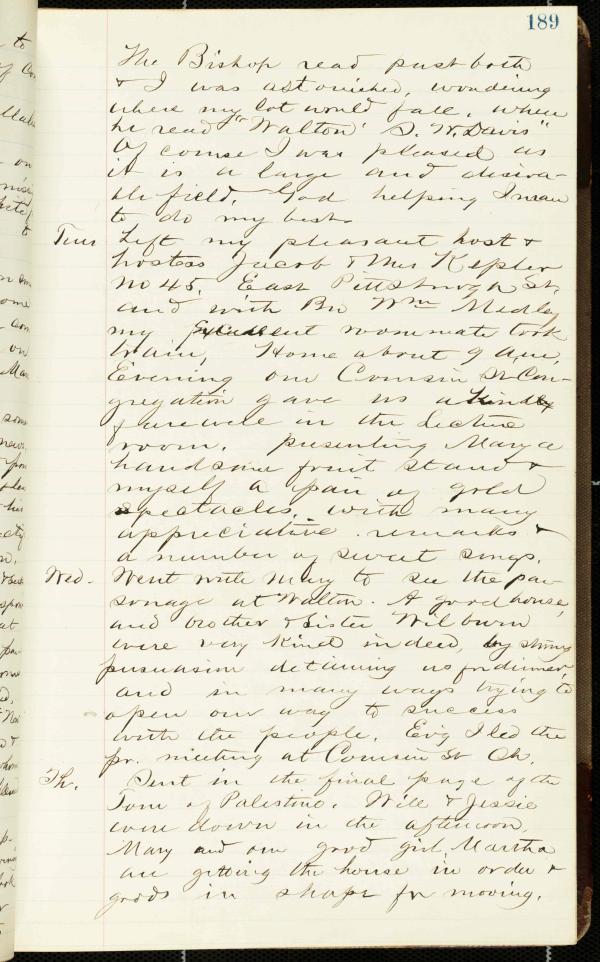 189
The Bishop read past both
& I was astonished, wondering
where my lot would fall, when
he read "Walton' S. W. Davis"
Of course I was pleased as
it is a large and desira-
ble field. God helping I mean
to do my best.
Tues Left my pleasant host &
hostess Jacob & Mrs Kepler
No 45. East Pittsburgh St.
and with Bro Wm Medley
my excellent roommate took
train, Home about 9 a.m.
Evening our St Con-
gregation gave us a kindly
farewell in the lecture
room. presenting Mary a
handsome fruit stand &
myself a pair of gold
spectacles, with many
appreciative remarks &
a number of sweet songs.
Wed. Went with Mary to see the par
sonage at Walton. A good house,
and brother & Sister Wilburn
were very kind indeed, by strong
persuasion detaining us for dinner,
and in many ways trying to
open our way to success
with the people. Ev'g I led the
pr. meeting at St Ch.
Th. Sent in the final page of the
Tour of Palestine. Will & Jessie
were down in the afternoon.
Mary and our good girl, Martha
are getting the house in order &
goods in shape for moving.